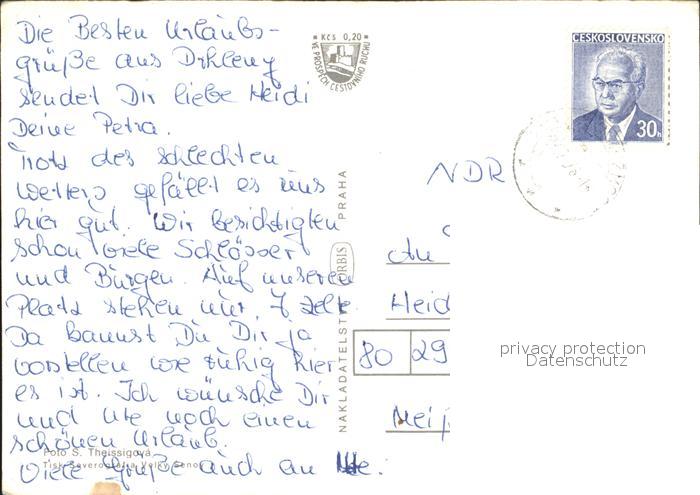 Die Besten Urlaubs-
grüße aus
sendet Dir liebe Heidi
Deine Petra.
Trotz des schlechten
Wetters gefällt es uns
hier gut. Wir besichtigten
schon viele Schlösser
und Burgen. Auf unserem
Platz stehen nur 7 Zelte.
Da kannst Du Dir ja
vorstellen wie ruhig hier
es ist. Ich wünsche Dir
und Ute noch einen
schönen Urlaub.
Viele Grüße auch an Ute.
Foto S. Theissigová
Tisk Severografia Velký Šenov
* Kčs 0,20 *
VE PROSPĚCH CESTOVNÍHO RUCHU
NAKLADATELSTVÍ ORBIS PRAHA
ČESKOSLOVENSKO
30h
NDR
An
Heid
80 29
privacy protection
Datenschutz